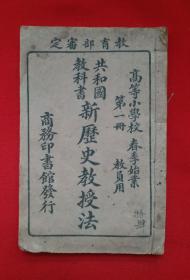 教育部審定
高等小學校 春季始業
第一冊 教員用
共和國
教科書
新歷史教授法
商務印書館發行